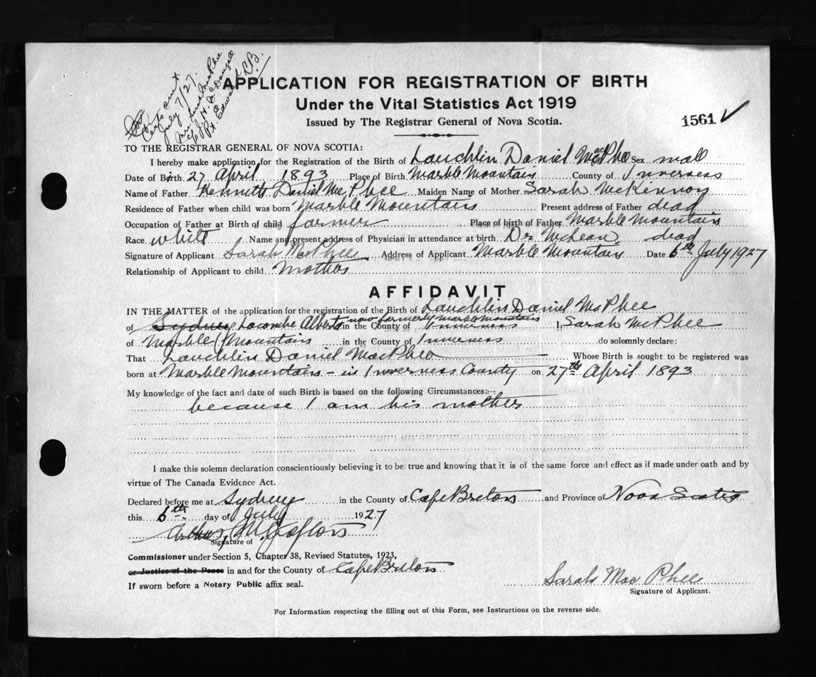 Cert sent
July 7/27.
Mrs Sarah MacPhee
C.B.
APPLICATION FOR REGISTRATION OF BIRTH
Under the Vital Statistics Act 1919
Issued by The Registrar General of Nova Scotia.
1561 ✓
TO THE REGISTRAR GENERAL OF NOVA SCOTIA:
I hereby make application for the Registration of the Birth of Lauchlin Daniel MacPhee Sex male
Date of Birth 27 April 1893 Place of Birth Marble Mountain County of Inverness
Name of Father Kenneth Daniel McPhee Maiden Name of Mother Sarah McKennoy
Residence of Father when child was born Marble Mountain Present address of Father dead
Occupation of Father at Birth of child farmer Place of birth of Father Marble Mountain
Race white Name and present address of Physician in attendance at birth Dr McLean dead
Signature of Applicant Sarah McPhee Address of Applicant Marble Mountain Date 6th July 1927
Relationship of Applicant to child mother
AFFIDAVIT
IN THE MATTER of the application for the registration of the Birth of Lauchlin Daniel McPhee
now formerly Marble Mountain
of Sydney Lacombe Alberta in the County of Inverness I, Sarah McPhee
of Marble Mountain in the County of Inverness do solemnly declare:
That Lauchlin Daniel MacPhee Whose Birth is sought to be registered was
born at Marble Mountain - in Inverness County on 27th April 1893
My knowledge of the fact and date of such Birth is based on the following Circumstances:-
because I am his mother
I make this solemn declaration conscientiously believing it to be true and knowing that it is of the same force and effect as if made under oath and by
virtue of The Canada Evidence Act.
Declared before me at Sydney in the County of Cape Breton and Province of Nova Scotia
this 6th day of July 1927
Arthur
Signature of
Commissioner under Section 5, Chapter 38, Revised Statutes, 1923,
or Justice of the Peace in and for the County of Cape Breton
If sworn before a Notary Public affix seal.
Sarah Mac Phee
Signature of Applicant.
For Information respecting the filling out of this Form, see Instructions on the reverse side.